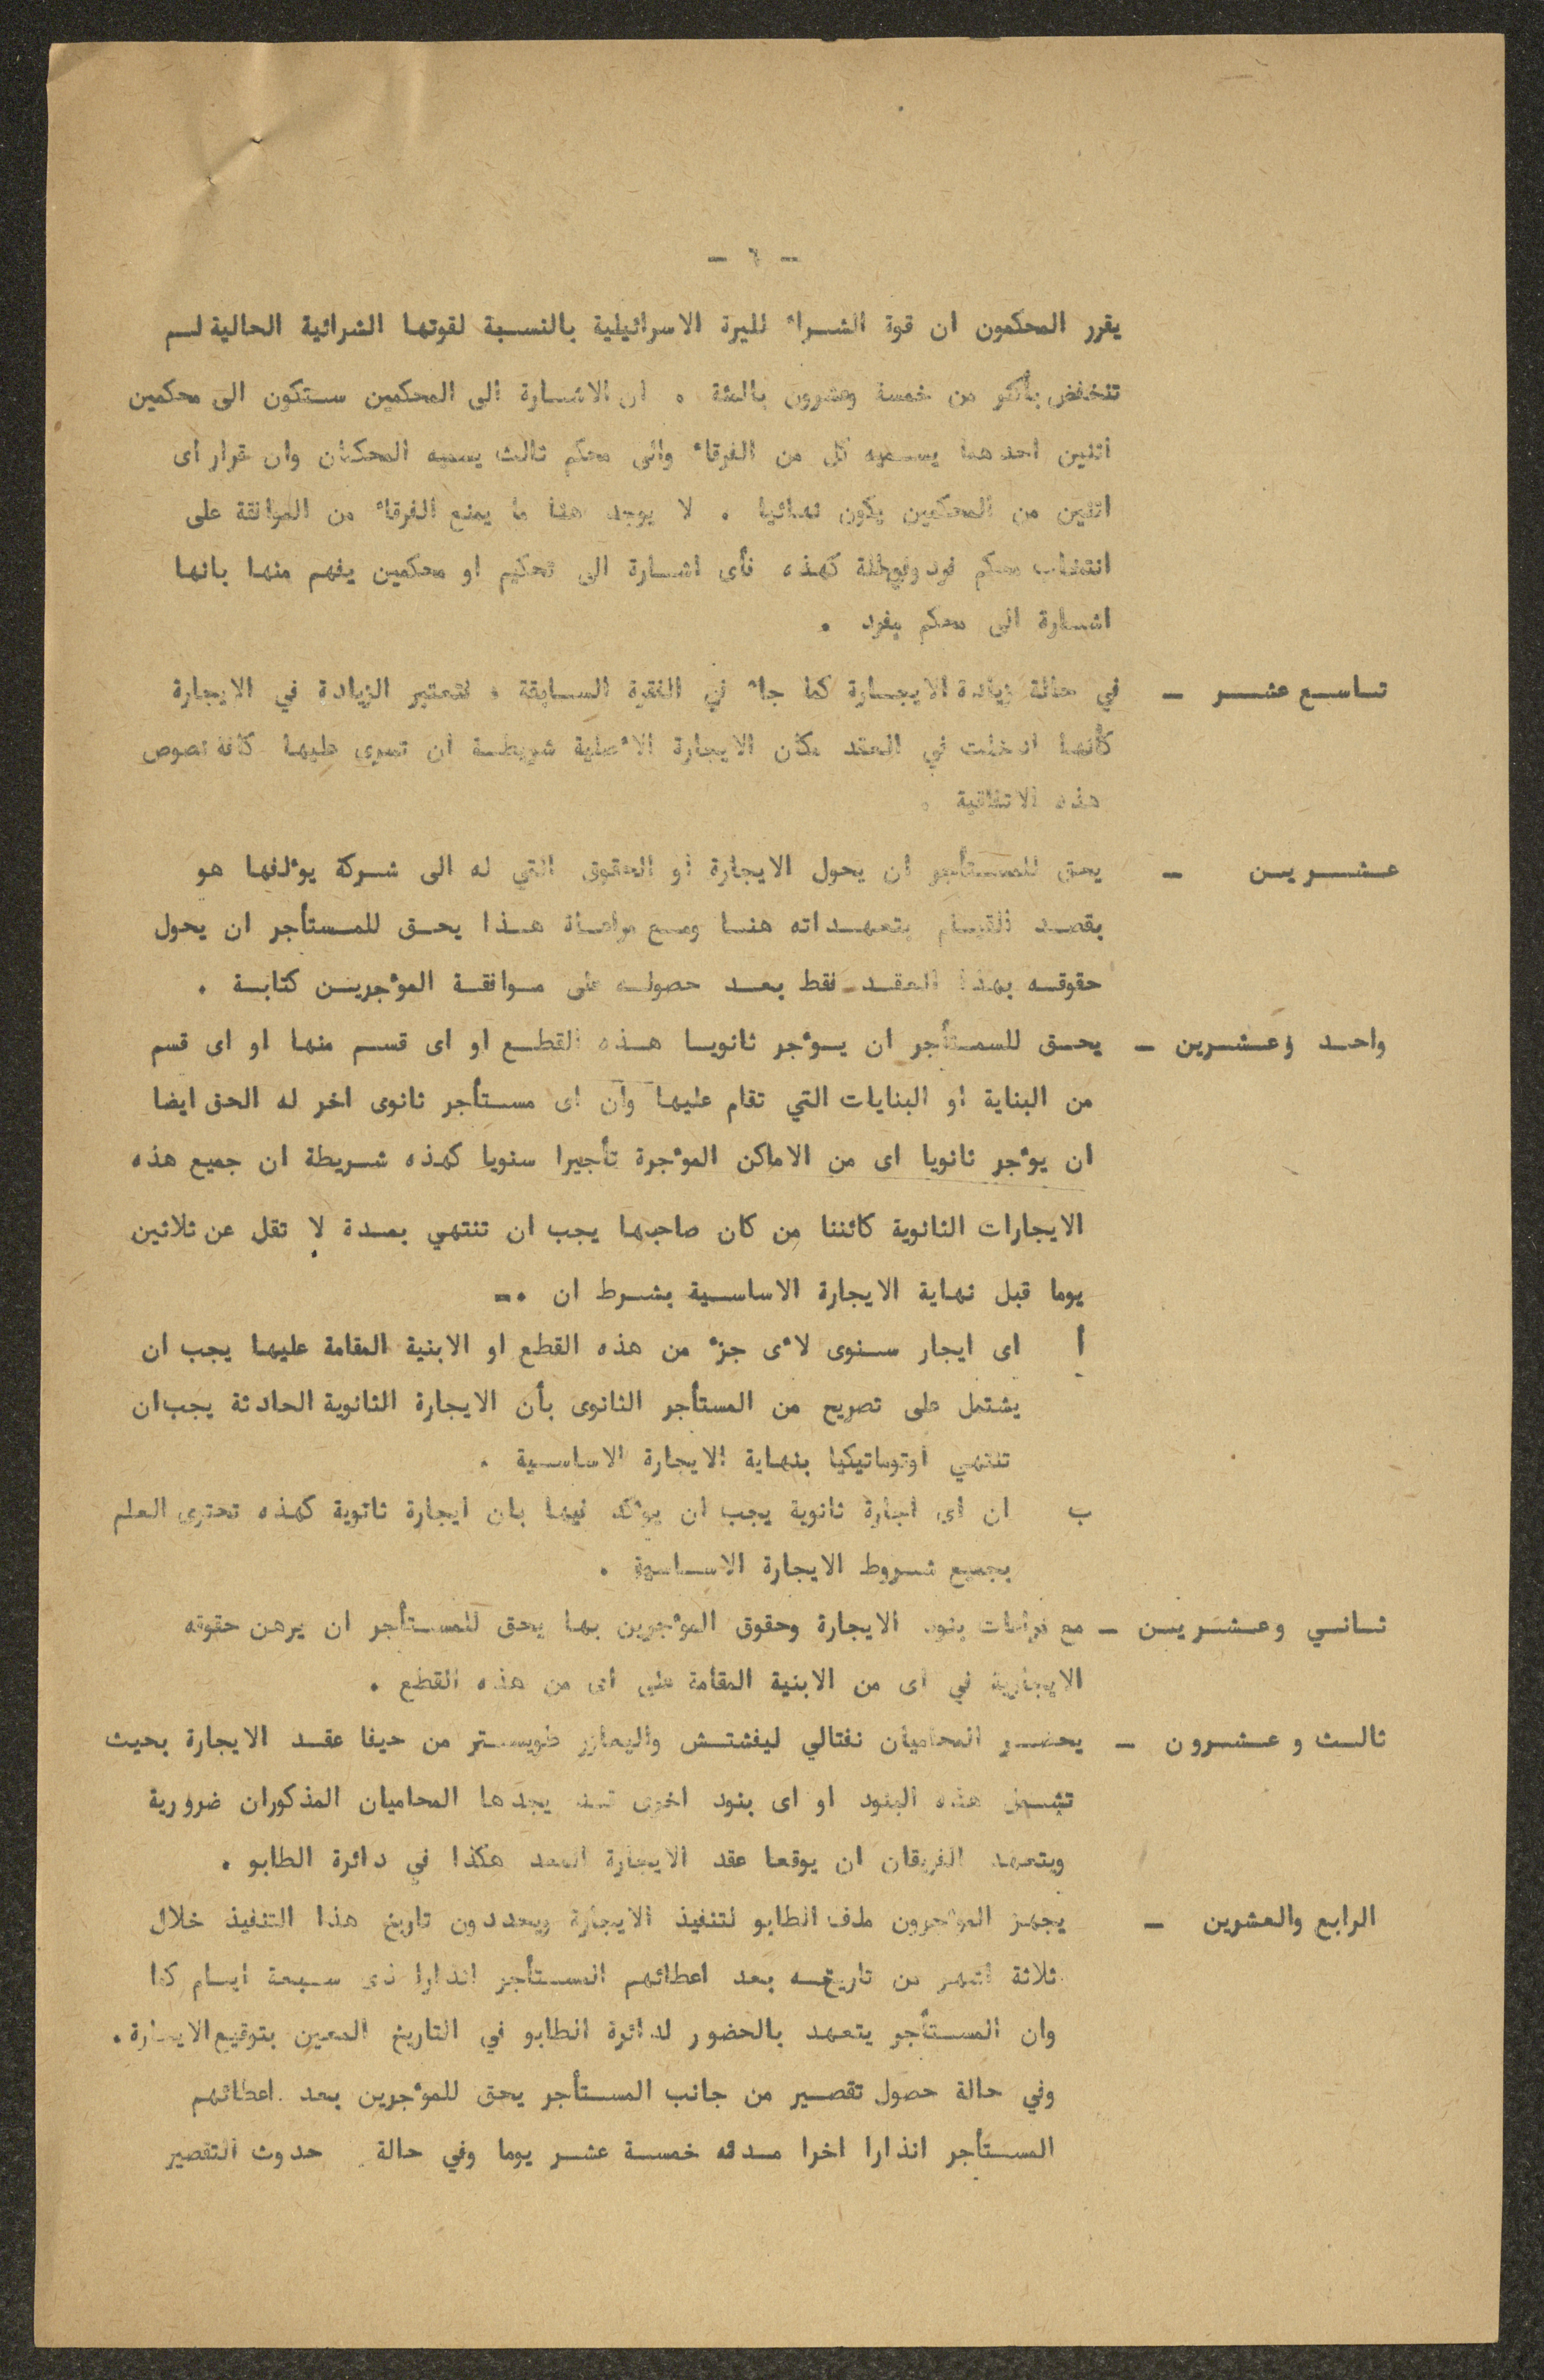 - ٦ -
يقرر المحكمون ان قوة الشراء لليرة الاسرائيلية بالنسبة لقوتها الشرائية الحالية لم
تنخفض بأكثر من خمسة وعشرون بالمئة . ان الاشارة الى المحكمين ستكون الى محكمين
اثنين احدهما يسميه كل من الفرقاء والى محكم ثالث يسميه المحكمان وان قرار اى
اثنين من المحكمين يكون نهائيا . لا يوجد هنا ما يمنع الفرقاء من الموافقة على
انتخاب محكم فرد كهذه فأى اشارة الى تحكيم او محكمين يفهم منها بانها
اشارة الى محكم مفرد .
تاسع عشر - في حالة زيادة الايجارة كما جاء في الفقرة السابقة ، فتعتبر الزيادة في الايجارة
كأنها ادخلت في العقد مكان الايجارة الاصلية شريطة ان تسرى عليها كافة نصوص
هذه الاتفاقية .
عشرين - يحق للمستأجر ان يحول الايجارة او الحقوق التي له الى شركة يؤلفها هو
بقصد القيام بتعهداته هنا ومع مراعاة هذا يحق للمستأجر ان يحول
حقوقه بهذا العقد فقط بعد حصوله على موافقة المؤجرين كتابة .
واحد وعشرين - يحق للسمتأجر ان يؤجر ثانويا هذه القطع او اى قسم منها او اى قسم
من البناية او البنايات التي تقام عليها وان اى مستأجر ثانوى اخر له الحق ايضا
ان يؤجر ثانويا اى من الاماكن المؤجرة تأجيرا سنويا كهذه شريطة ان جميع هذه
الايجارات الثانوية كائننا من كان صاحبها يجب ان تنتهي بمدة لا تقل عن ثلاثين
يوما قبل نهاية الايجارة الاساسية بشرط ان .-
أ اى ايجار سنوى لاى جزء من هذه القطع او الابنية المقامة عليها يجب ان
يشتمل على تصريح من المستأجر الثانوى بأن الايجارة الثانوية الحادثة يجب ان
تنتهي اوتوماتيكيا بنهاية الايجارة الاساسية .
ب ان اى اجارة ثانوية يجب ان يؤكد فيها بان ايجارة ثانوية كهذه تحتوى العلم
بجميع شروط الايجارة الاساسية .
ثاني وعشرين - مع مراعات بنود الايجارة وحقوق المؤجرين بها يحق للمستأجر ان يرهن حقوقه
الايجارية في اى من الابنية المقامة على اى من هذه القطع .
ثالث وعشرون - يحضر المحاميان نفتالي ليفشتش واليعازر طويستر من حيفا عقد الايجارة بحيث
تشمل هذه البنود او اى بنود اخرى قد يجدها المحاميان المذكوران ضرورية
ويتعهد الفريقان ان يوقعا عقد الايجارة المعد هكذا في دائرة الطابو .
الرابع والعشرين - يجهز المؤجرون ملف الطابو لتنفيذ الايجارة ويحددون تاريخ هذا التنفيذ خلال
ثلاثة اشهر من تاريخه بعد اعطائهم المستأجر انذارا ذى سبعة ايام كما
وان المستأجر يتعهد بالحضور لدائرة الطابو في التاريخ المعين بتوقيع الايجارة .
وفي حالة حصول تقصير من جانب المستأجر يحق للمؤجرين بعد اعطائهم
المستأجر انذارا اخرا مدته خمسة عشر يوما وفي حالة حدوث التقصير